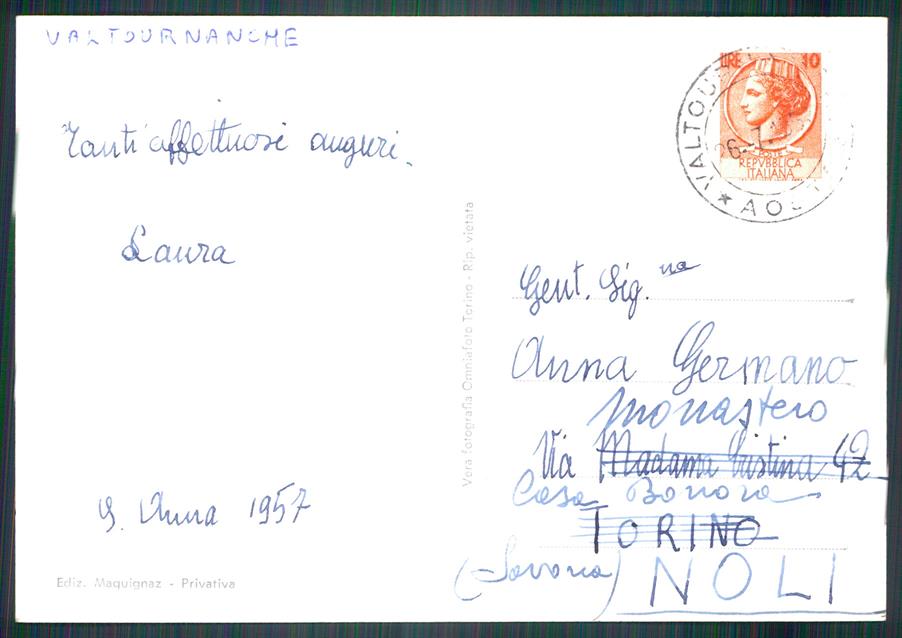 VALTOURNANCHE
Tanti affettuosi auguri.
Laura
S. Anna 1957
Ediz. Maquignaz - Privativa
Vera fotografia Omniafoto Torino - Rip. vietata
LIRE 10
POSTE
REPVBBLICA
ITALIANA
VALTOU
AOSTA
26-7
Gent. Sig.na
Anna Germano
Monastero
Via Madama Cristina 42
Casa Bonora
TORINO
(Savona) NOLI